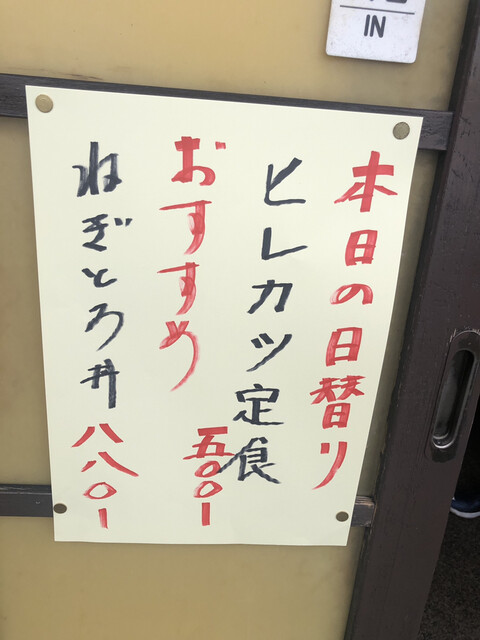 IN
本日の日替り
ヒレカツ定食
五〇〇ー
おすすめ
ねぎとろ丼
八八〇ー